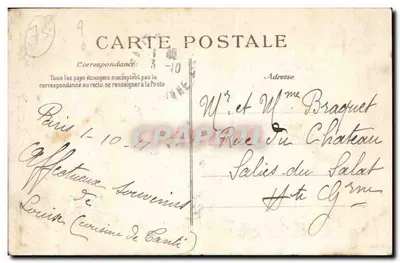 CARTE POSTALE
Correspondance
Tous les pays étrangers n'acceptent pas la
correspondance au recto, se renseigner à la Poste
Adresse
Paris 1-10-
Affectueux Souvenirs
de
Louise (cousine de
Mr et Mme Braquet
Rue du Chateau
Salies du Salat
Hte Gne
3-10